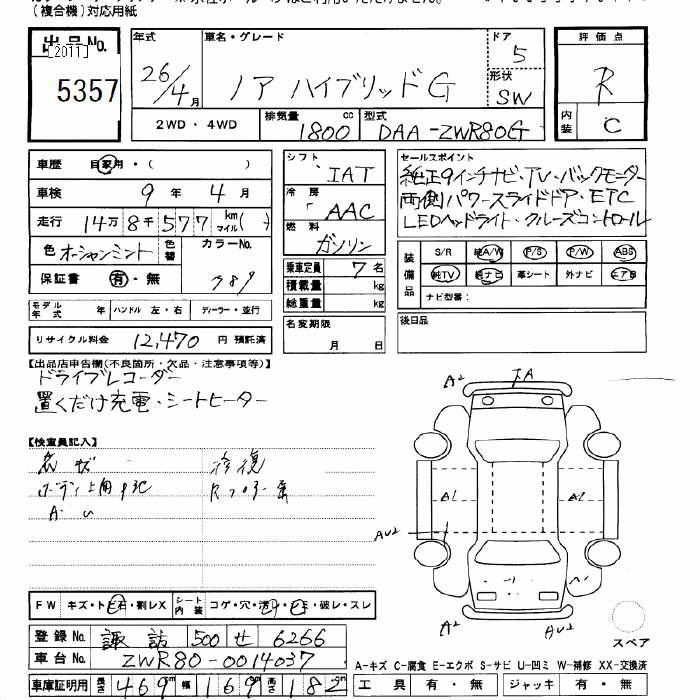 (複合機)対応用紙
出品No.
[2011]
5357
年式
26/4月
車名・グレード
ノア ハイブリッドG
ドア
5
形状
SW
評価点
R
内装
C
2WD・4WD
排気量
1800 cc
型式
DAA-ZWR80G
車歴 自家用・( )
車検 9年 4月
走行 14万8千577 km マイル( )
色 オーシャンミント 色替 カラーNo.
保証書 有・無
シフト
IAT
冷房
AAC
燃料
ガソリン
乗車定員 7名
積載量 kg
総重量 kg
名変期限
月 日
セールスポイント
純正9インチナビ・TV・バックモニター
両側パワースライドドア・ETC
LEDヘッドライト・クルーズコントロール
装備品
S/R 純A/W P/S P/W ABS
純TV 純ナビ 革シート 外ナビ エアB
ナビ型番:
後日品
モデル年式 年 ハンドル 左・右 ディーラー・並行
リサイクル料金 12,470 円 預託済
【出品店申告欄(不良箇所・欠品・注意事項等)】
ドライブレコーダー
置くだけ充電・シートヒーター
【検査員記入】
修復
A2
A2
A2
AU2
A2
AU2
FW キズ・ト石・割レX シート内装 コゲ・穴・汚レ・シミ・破レ・スレ
登録No. 諏訪 500 せ 6266
車台No. ZWR80-0014037
車庫証明用 長さ 469cm 幅 169cm 高さ 182cm
スペア
A-キズ C-腐食 E-エクボ S-サビ U-凹ミ W-補修 XX-交換済
工具 有・無 ジャッキ 有・無